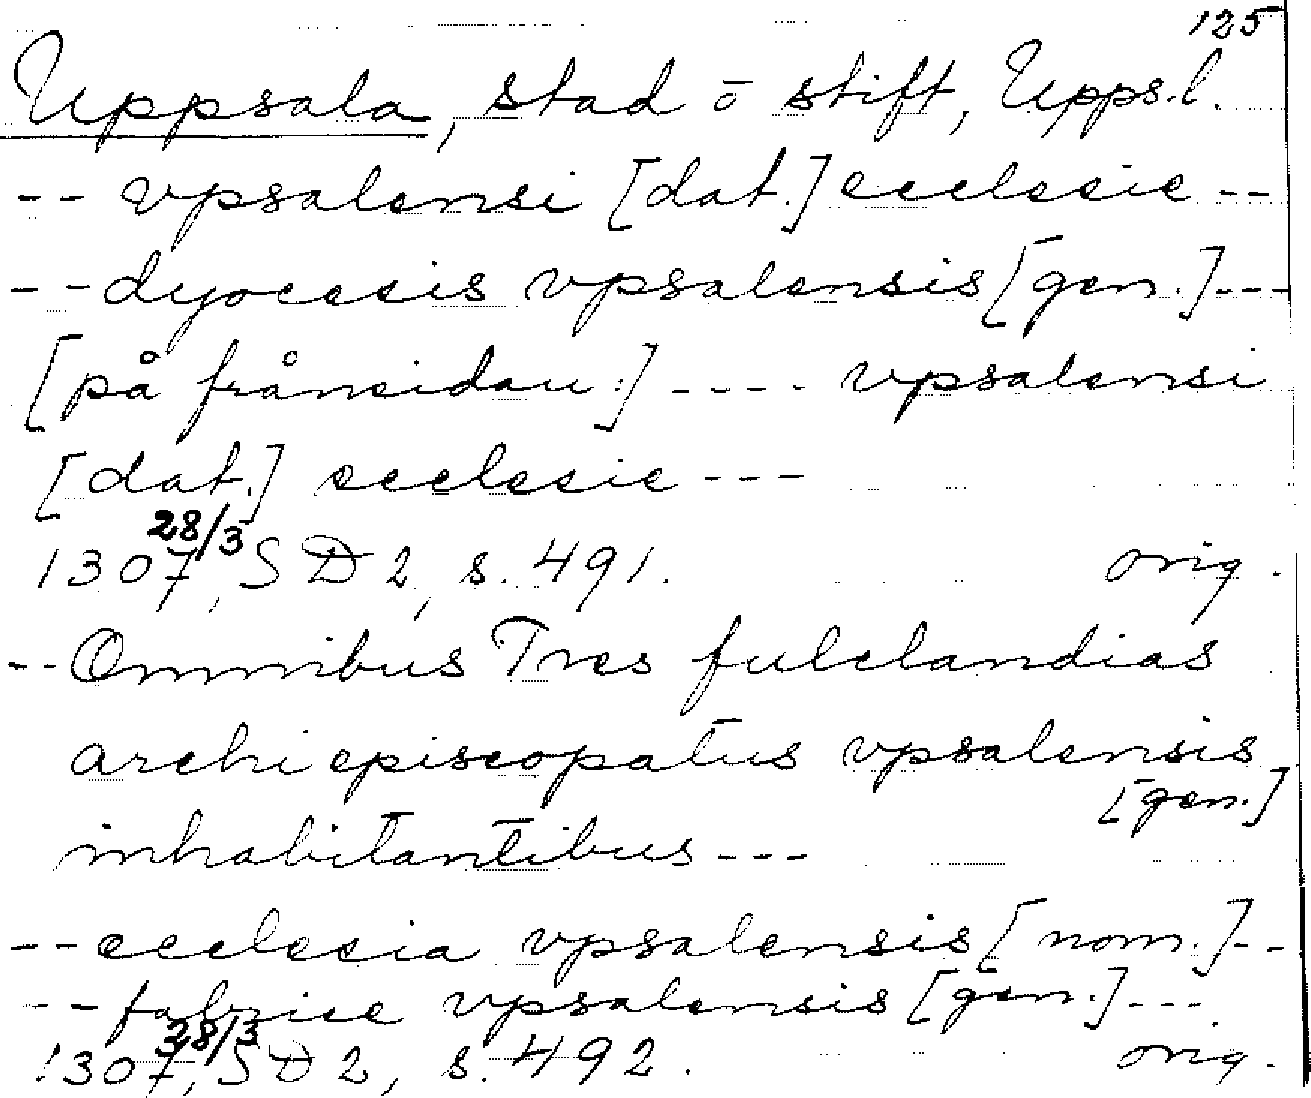 125
Uppsala, stad o stift, Upps.l.
-- vpsalensi [dat.] ecclesie --
-- dyocesis vpsalensis [gen.] ---
[på frånsidan:] ---- vpsalensi
[dat.] ecclesie ---
28/3
1307, SD 2, s. 491. orig.
-- Omnibus Tres fulclandias
archiepiscopatus vpsalensis
[gen.]
inhabitantibus ---
-- ecclesia vpsalensis [nom.] --
-- fabrice vpsalensis [gen.] ---
28/3
1307, SD 2, s. 492. orig.